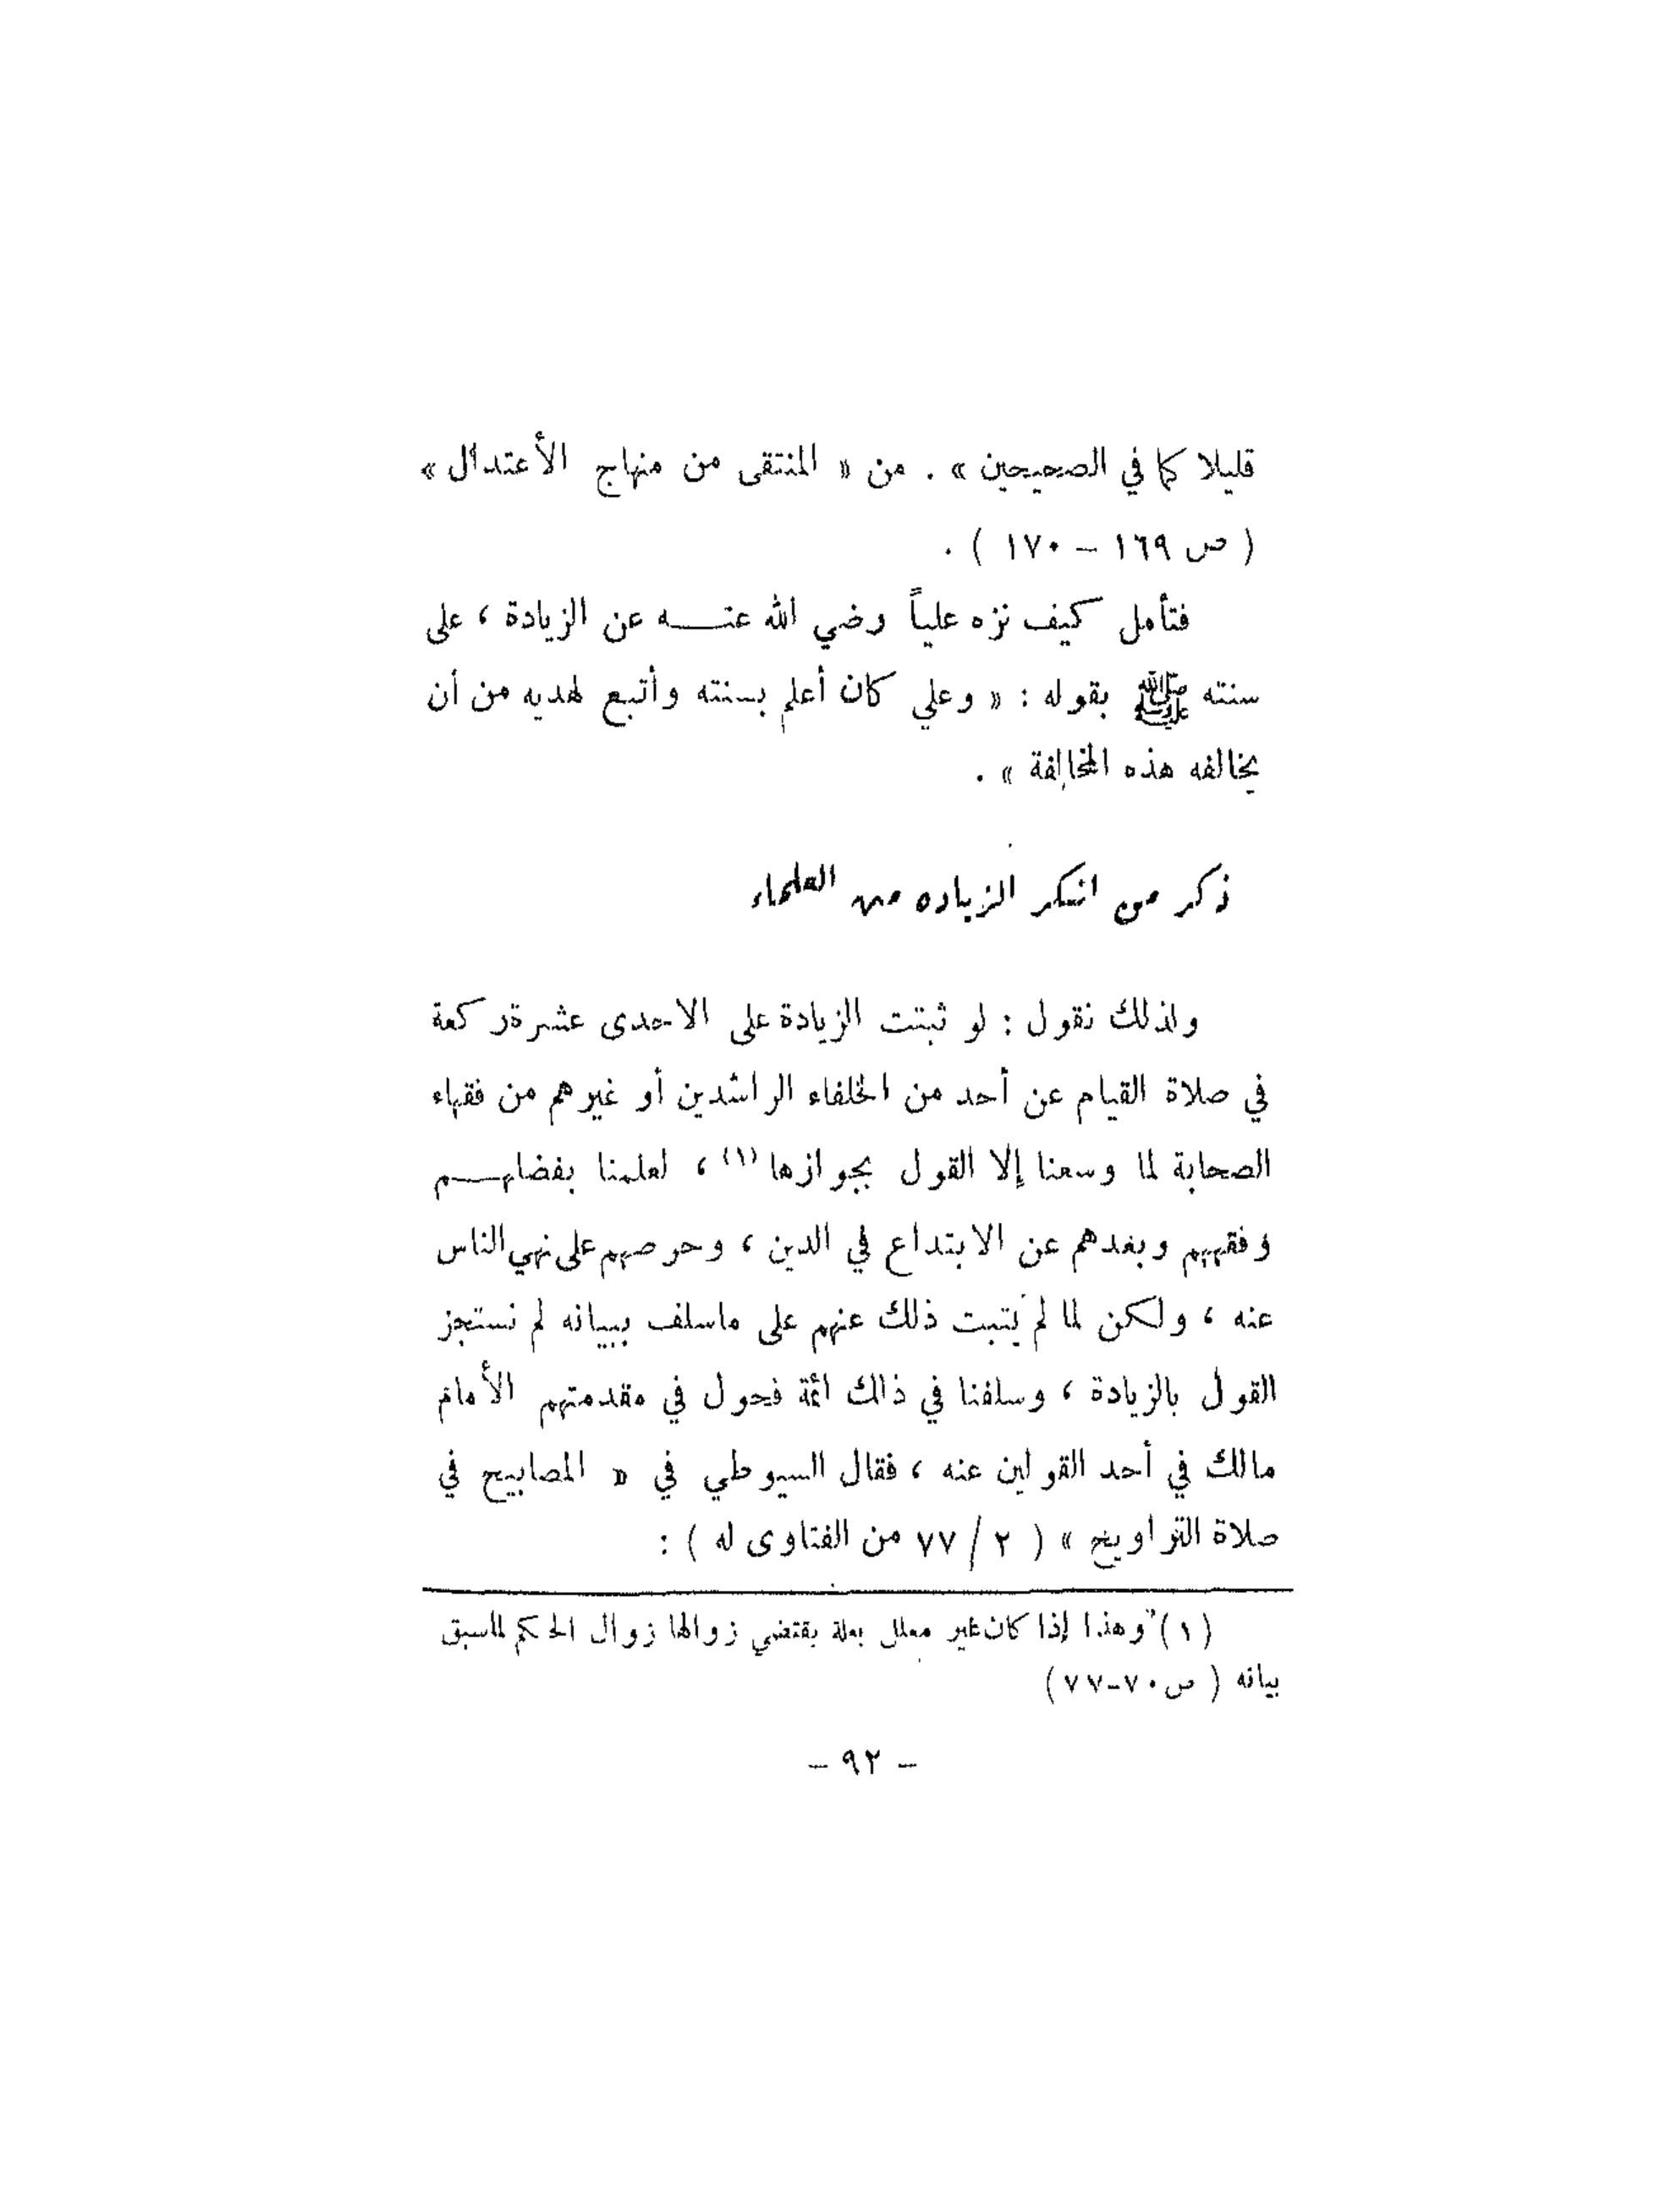 قليلا كما في الصحيحين » . من « المنتقى من منهاج الأعتدال »
( ص ١٦٩ – ١٧٠ ) .
فتأمل كيف نزه علياً رضي الله عنـــه عن الزيادة ، على
سنته ﷺ بقوله : « وعلي كان أعلم بسنته وأتبع لهديه من أن
يخالفه هذه المخالفة » .
ذكر من انكر الزياده من العلماء
ولذلك نقول : لو ثبتت الزيادة على الاحدى عشرة ركعة
في صلاة القيام عن أحد من الخلفاء الراشدين أو غيرهم من فقهاء
الصحابة لما وسعنا إلا القول بجوازها (١) ، لعلمنا بفضلهــم
وفقههم وبعدهم عن الابتداع في الدين ، وحرصهم على نهي الناس
عنه ، ولكن لما لم يثبت ذلك عنهم على ماسلف ببيانه لم نستجز
القول بالزيادة ، وسلفنا في ذلك ائمة فحول في مقدمتهم الأمام
مالك في أحد القولين عنه ، فقال السيوطي في « المصابيح في
صلاة التراويح » ( ٢ / ٧٧ من الفتاوى له ) :
(١) وهذا إذا كان غير معلل بعلة يقتضي زوالها زوال الحكم لماسبق
بيانه ( ص ٧٠-٧٧ )
– ٩٢ –